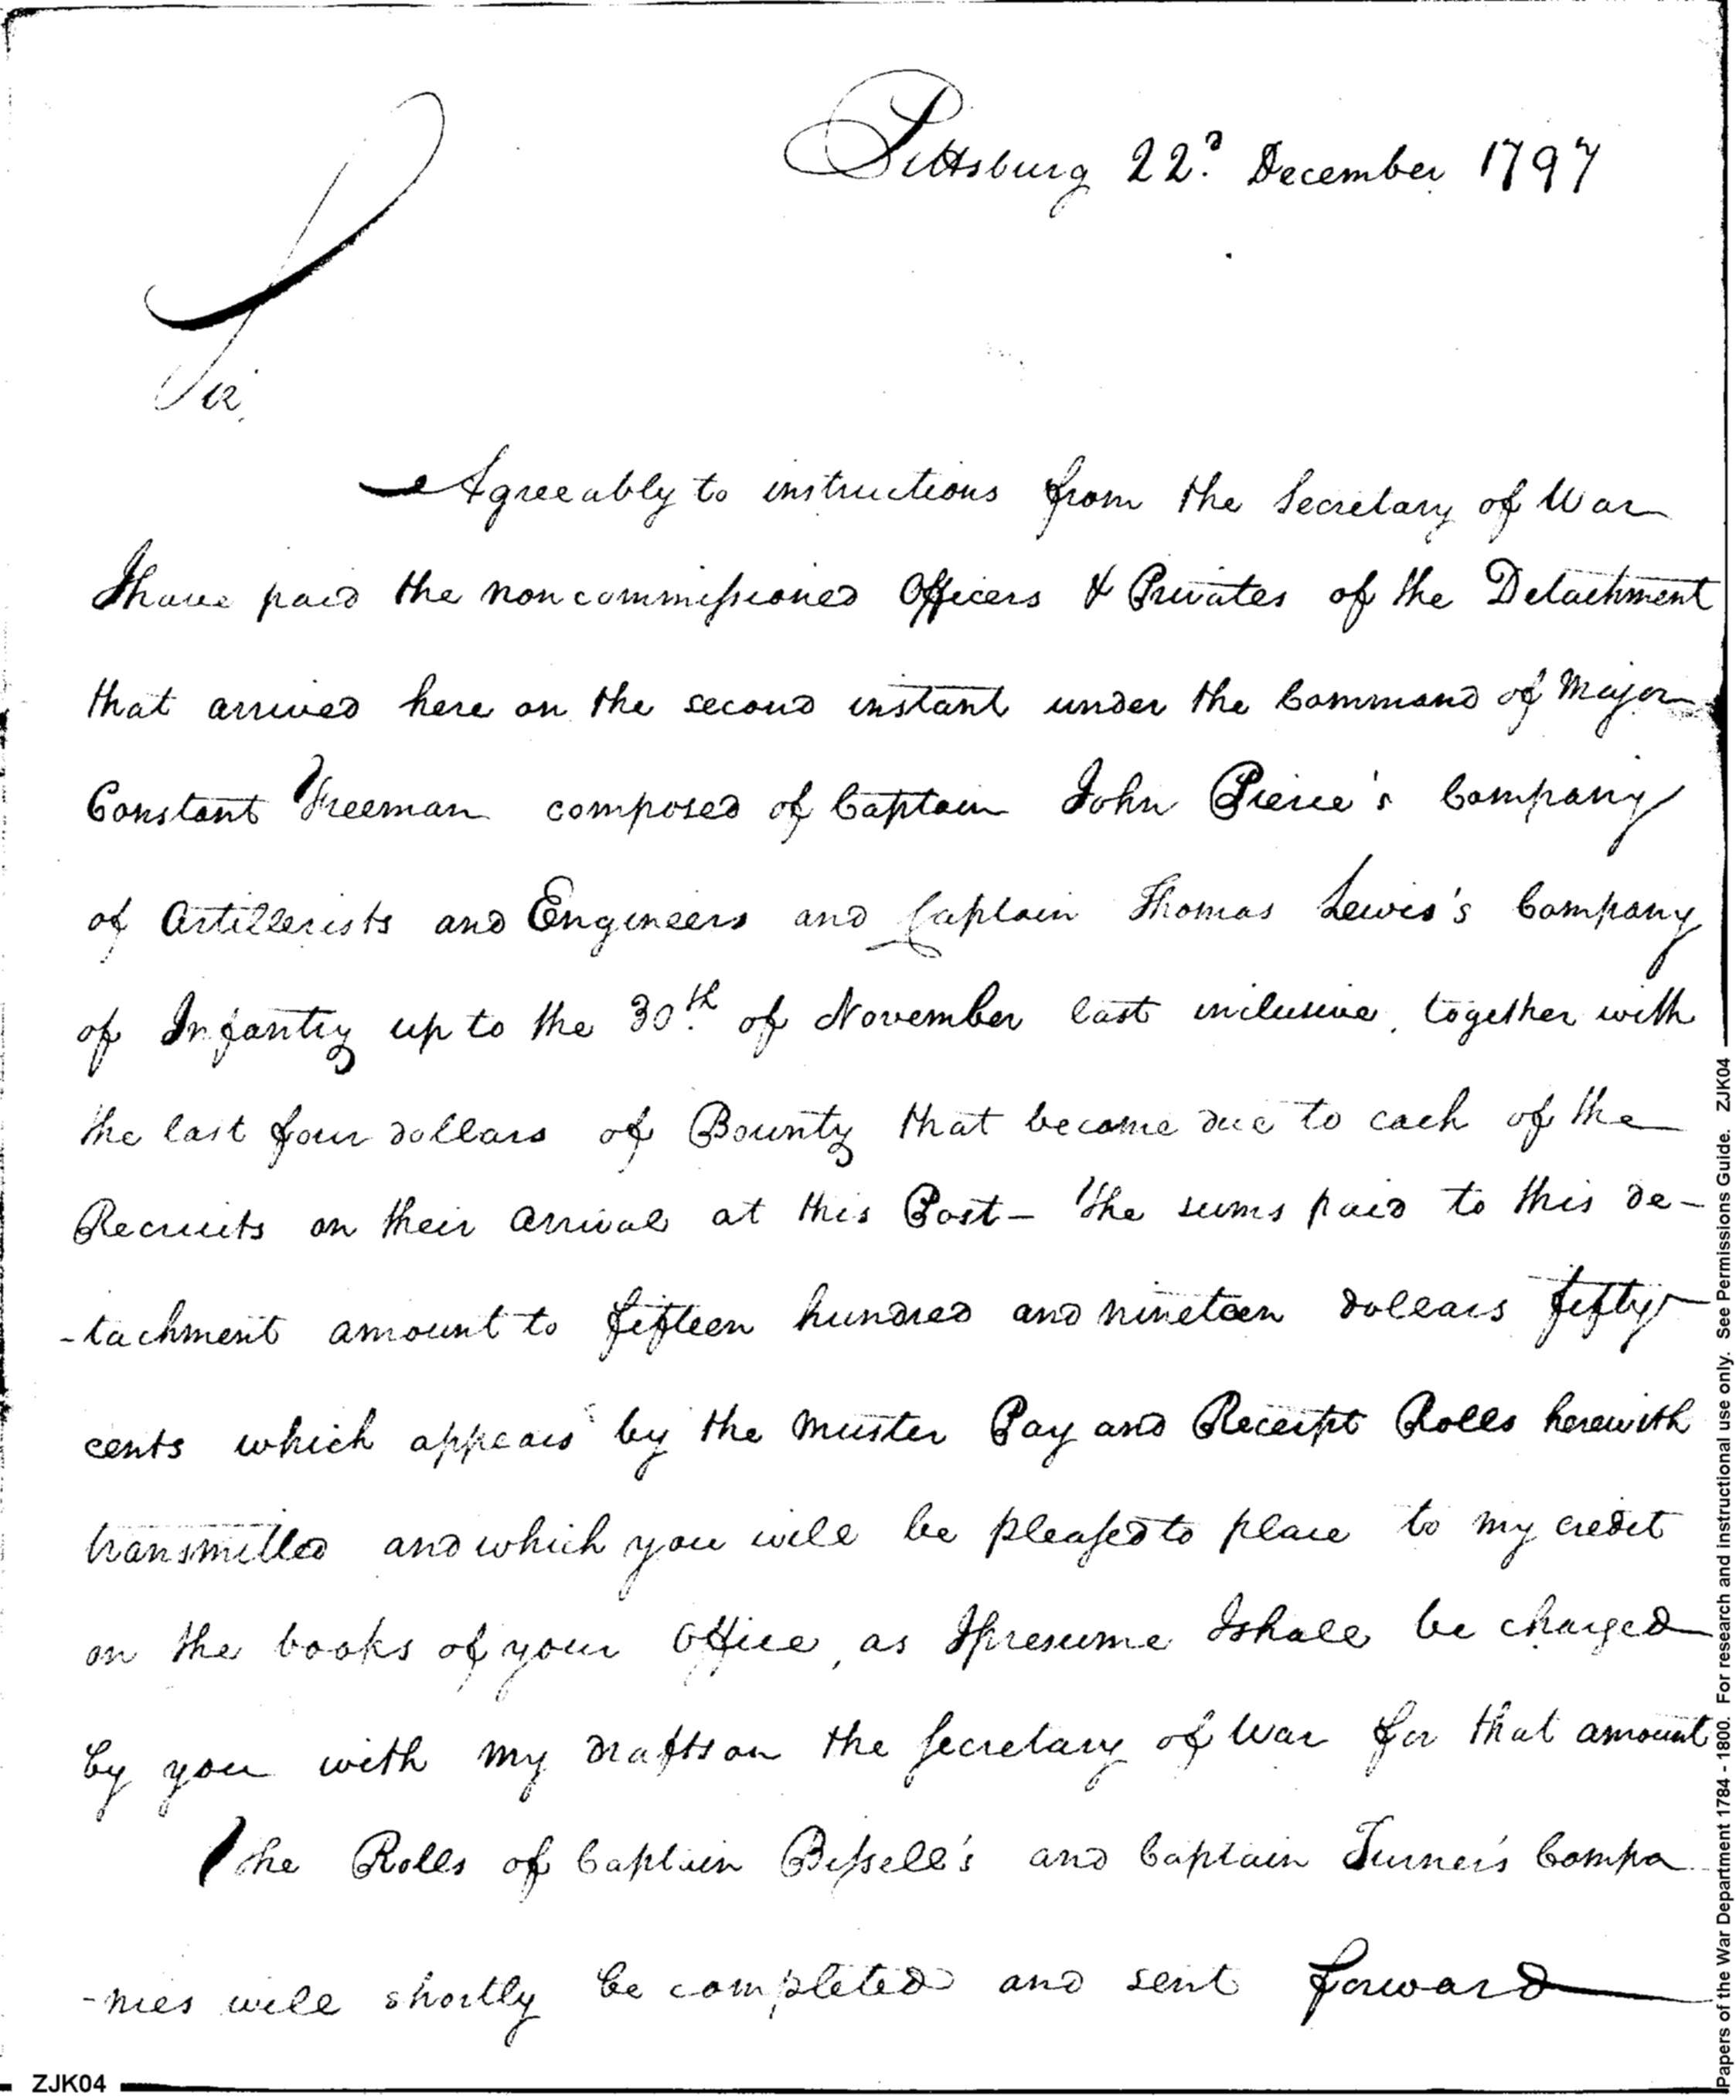 Pittsburg 22d. December 1797
Sir,
Agreeably to instructions from the Secretary of War
I have paid the noncommissioned Officers & Privates of the Detachment
that arrived here on the second instant under the Command of Major
Constant Freeman composed of Captain John Pierce's Company
of Artillerists and Engineers and Captain Thomas Lewis's Company
of Infantry up to the 30th. of November last inclusive, together with
the last four dollars of Bounty that became due to each of the
Recruits on their arrival at this Post— The sums paid to this de-
-tachment amount to fifteen hundred and nineteen dollars fifty
cents which appears by the Muster Pay and Receipt Rolls herewith
transmitted and which you will be pleased to place to my credit
on the books of your Office, as I presume I shall be charged
by you with my drafts on the Secretary of War for that amount
The Rolls of Captain Bissell's and Captain Turner's Compa
-nies will shortly be completed and sent forward
ZJK04
Papers of the War Department 1784 - 1800. For research and instructional use only. See Permissions Guide. ZJK04